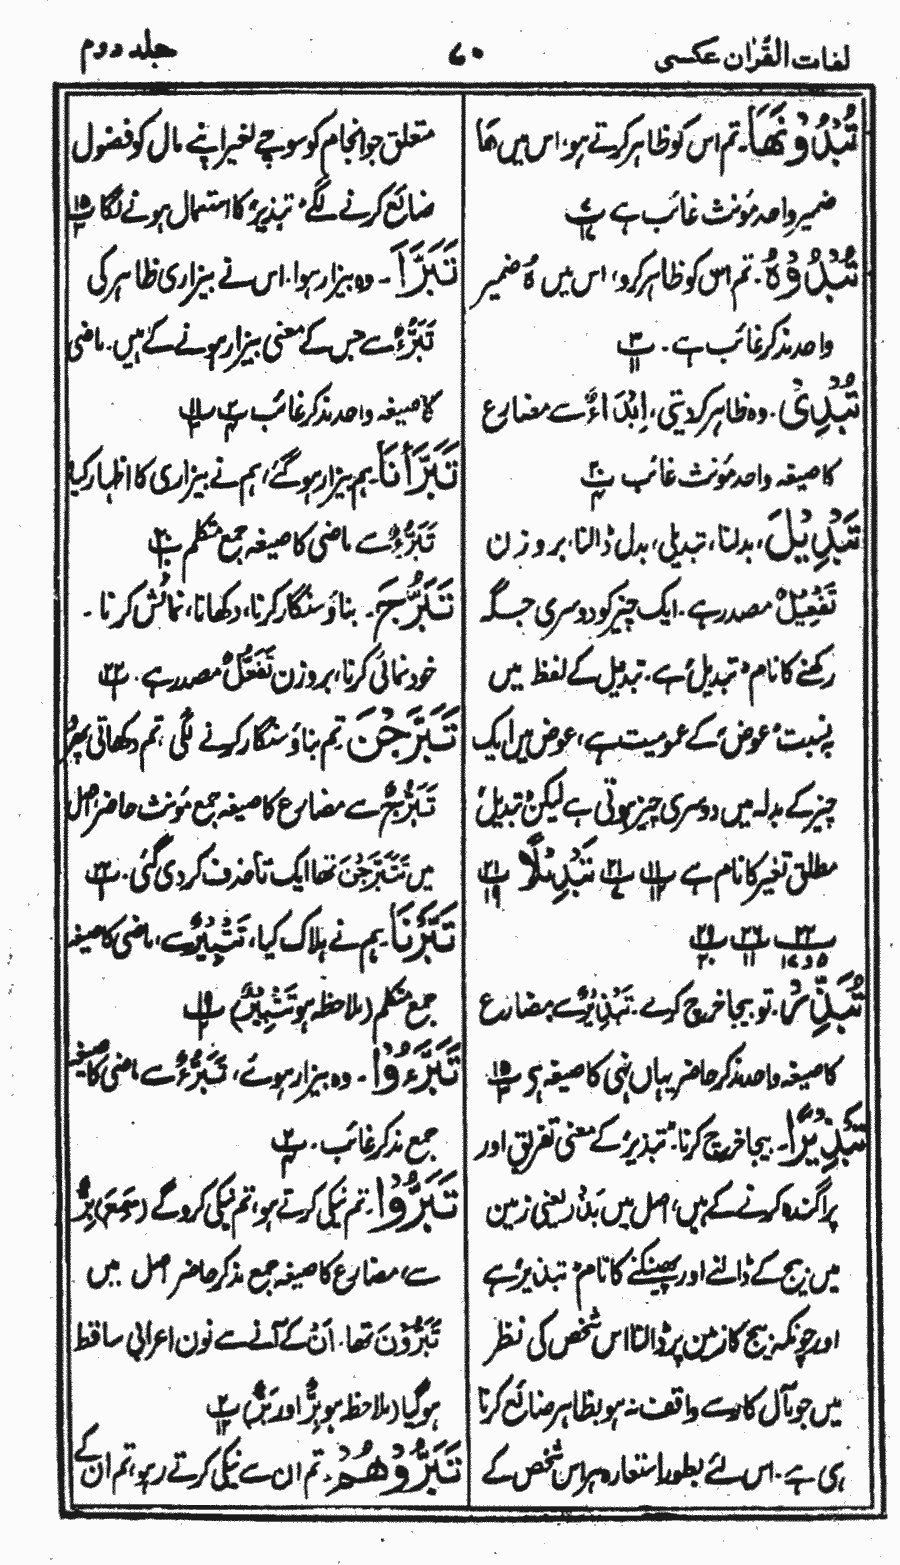 لغات القرآن عکسی
۷۰
جلد دوم
تُبْدُوْنَهَا۔ تم اس کو ظاہر کرتے ہو، اس میں ھَا
ضمیر واحد مؤنث غائب ہے
تُبْدُوْهُ۔ تم اس کو ظاہر کرو، اس میں ہُ ضمیر
واحد مذکر غائب ہے۔
تُبْدِیْ۔ وہ ظاہر کر دیتی، اِبْدَاءٌ سے مضارع
کا صیغہ واحد مؤنث غائب
تَبْدِیْلَ، بدلنا، تبدیلی، بدل ڈالنا، بروزن
تَفْعِیْلٌ مصدر ہے۔ ایک چیز کو دوسری جگہ
رکھنے کا نام تبدیل ہے۔ تبدیل کے لفظ میں
بہ نسبت عوض کے عمومیت ہے، عوض میں ایک
چیز کے بدلہ میں دوسری چیز ہوتی ہے لیکن تبدیل
مطلق تغیر کا نام ہے تَبْدِیْلًا
تُبَذِّرْ۔ تو بیجا خرچ کرے۔ تَبْذِیْرٌ سے مضارع
کا صیغہ واحد مذکر حاضر یہاں نہی کا صیغہ ہی
تَبْذِیْرًا۔ بیجا خرچ کرنا۔ تبذیر کے معنی تفریق اور
پراگندہ کرنے کے ہیں، اصل میں بَذْر یعنی زمین
میں بیج کے ڈالنے اور پھینکنے کا نام تبذیر ہے
اور چونکہ بیج کا زمین پر ڈالنا اس شخص کی نظر
میں جو مآل کار سے واقف نہ ہو بظاہر ضائع کرنا
ہی ہے۔ اس لئے بطور استعارہ ہر اس شخص کے
متعلق جو انجام کو سوچے بغیر اپنے مال کو فضول
ضائع کرنے لگے تبذیر کا استعمال ہونے لگا
تَبَرَّاَ۔ وہ بیزار ہوا۔ اس نے بیزاری ظاہر کی
تَبَرُّءٌ سے جس کے معنی بیزار ہونے کے ہیں۔ ماضی
کا صیغہ واحد مذکر غائب
تَبَرَّاْنَا۔ ہم بیزار ہو گئے، ہم نے بیزاری کا اظہار کیا
تَبَرُّءٌ سے ماضی کا صیغہ جمع متکلم
تَبَرُّجَ۔ بناؤ سنگار کرنا، دکھانا، نمائش کرنا۔
خود نمائی کرنا، بروزن تَفَعُّلٌ مصدر ہے۔
تَبَرَّجْنَ۔ تم بناؤ سنگار کرنے لگی، تم دکھاتی پھرو
تَبَرُّجٌ سے مضارع کا صیغہ جمع مؤنث حاضر، اصل
میں تَتَبَرَّجْنَ تھا ایک تا حذف کر دی گئی۔
تَبَّرْنَا۔ ہم نے ہلاک کیا، تَتْبِیْرٌ سے، ماضی کا صیغہ
جمع متکلم (ملاحظہ ہو تَتْبِیْرٌ)
تَبَرَّءُوْا۔ وہ بیزار ہوئے، تَبَرُّءٌ سے ماضی کا صیغہ
جمع مذکر غائب۔
تَبَرُّوْا۔ تم نیکی کرتے ہو، تم نیکی کرو گے (سَمِعَ) بِرٌّ
سے، مضارع کا صیغہ جمع مذکر حاضر اصل میں
تَبَرُّوْنَ تھا۔ اَنْ کے آنے سے نون اعرابی ساقط
ہو گیا (ملاحظہ ہو بِرٌّ اور بَرٌّ)
تَبَرُّوْهُمْ۔ تم ان سے نیکی کرتے رہو، تم ان کے